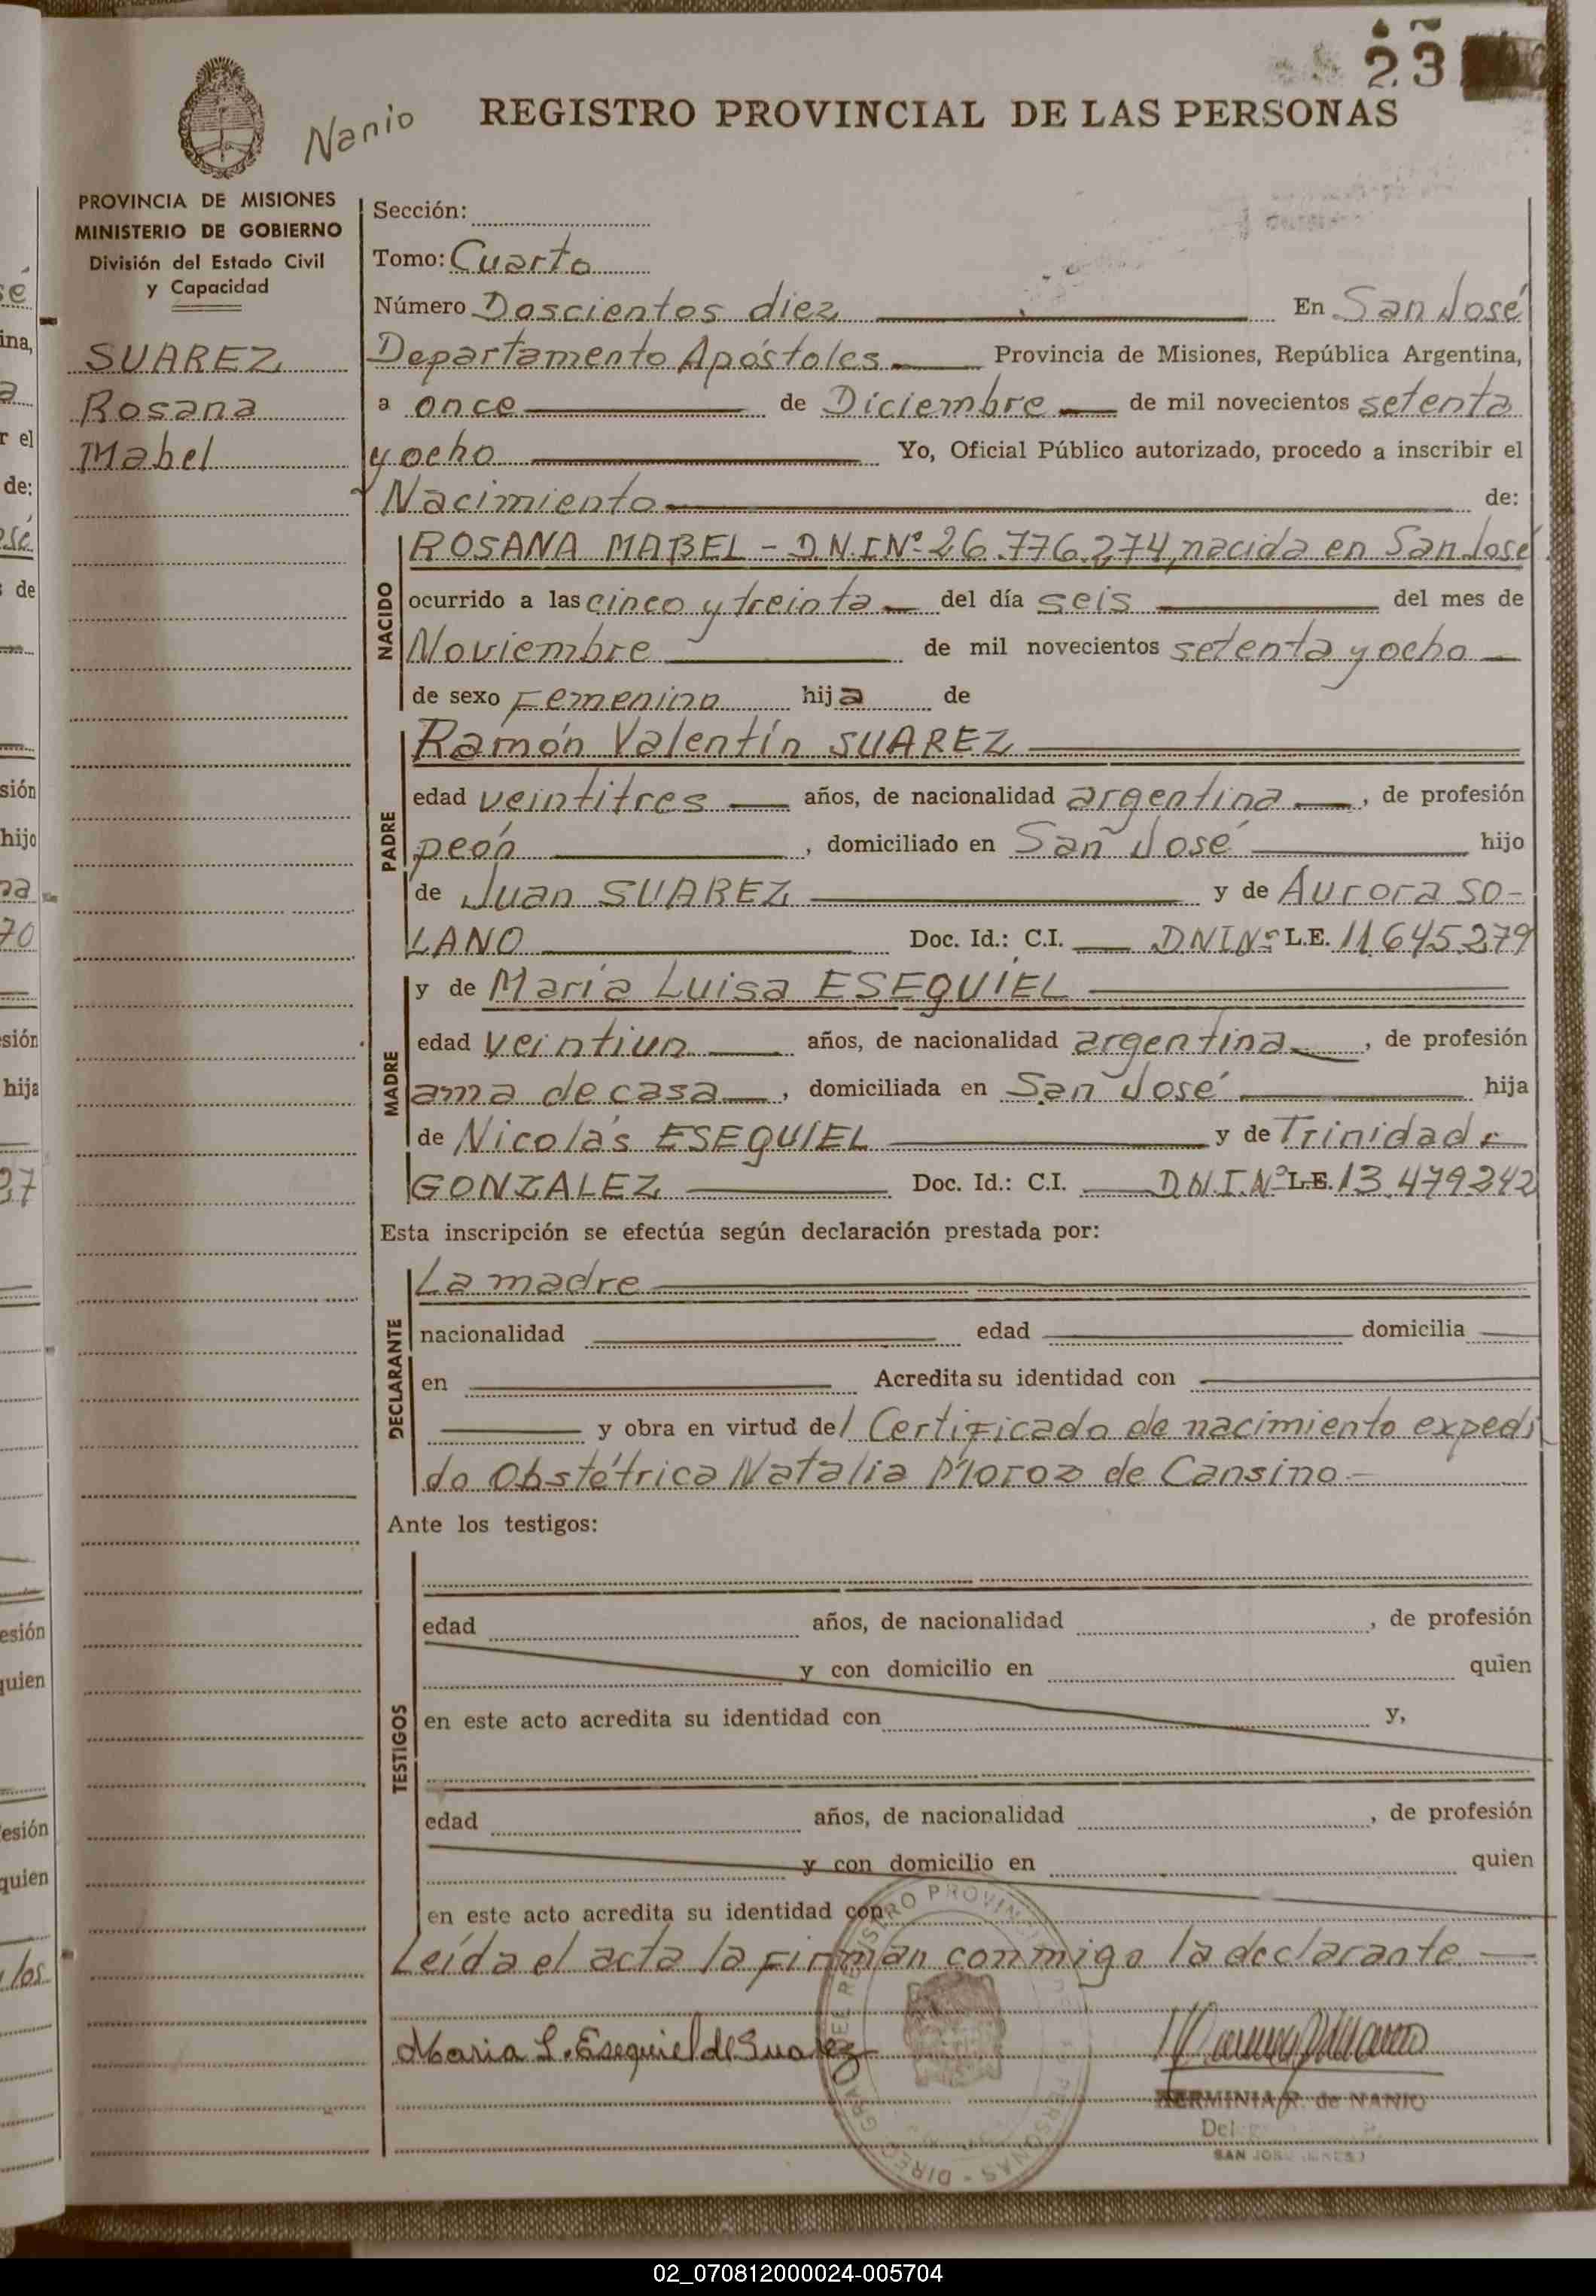 23
Nanio
REGISTRO PROVINCIAL DE LAS PERSONAS
PROVINCIA DE MISIONES
MINISTERIO DE GOBIERNO
División del Estado Civil
y Capacidad
SUAREZ
Rosana
Mabel
Sección:
Tomo: Cuarto
Número Doscientos diez En San José
Departamento Apóstoles Provincia de Misiones, República Argentina,
a once de Diciembre de mil novecientos setenta
y ocho Yo, Oficial Público autorizado, procedo a inscribir el
Nacimiento de:
NACIDO
ROSANA MABEL - D.N.I Nº 26.776.274, nacida en San José
ocurrido a las cinco y treinta del día seis del mes de
Noviembre de mil novecientos setenta y ocho
de sexo Femenino hija de
PADRE
Ramón Valentín SUAREZ
edad veintitres años, de nacionalidad argentina, de profesión
peón, domiciliado en San José hijo
de Juan SUAREZ y de Aurora SO-
LANO Doc. Id.: C.I. DNI Nº L.E. 11.645.279
MADRE
y de María Luisa ESEQUIEL
edad veintiun años, de nacionalidad argentina, de profesión
ama de casa, domiciliada en San José hija
de Nicolás ESEQUIEL y de Trinidad
GONZALEZ Doc. Id.: C.I. D.N.I. Nº L.E. 13.479242
Esta inscripción se efectúa según declaración prestada por:
DECLARANTE
La madre
nacionalidad edad domicilia
en Acredita su identidad con
y obra en virtud del Certificado de nacimiento expedi
do Obstétrica Natalia Moroz de Cansino.-
Ante los testigos:
TESTIGOS
edad años, de nacionalidad , de profesión
y con domicilio en quien
en este acto acredita su identidad con y,
edad años, de nacionalidad , de profesión
y con domicilio en quien
en este acto acredita su identidad con
Leída el acta la firman conmigo la declarante.
Maria L. Esequiel de Suarez
HERMINIA R. de NANIO
SAN JOSE
02_070812000024-005704